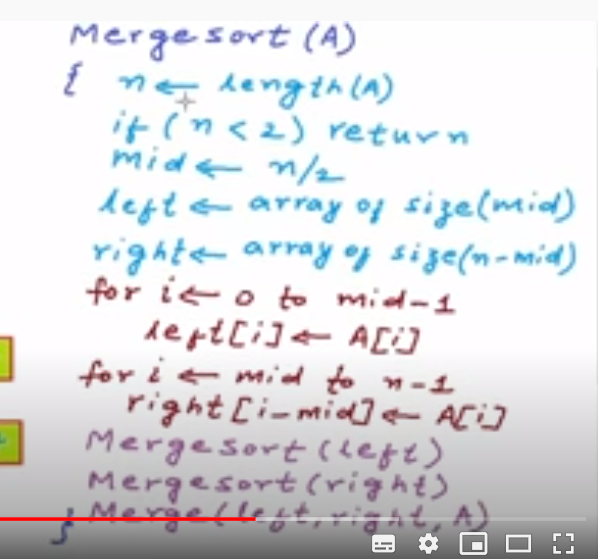 Mergesort (A)
{ n ← length(A)
if (n < 2) return
mid ← n/2
left ← array of size(mid)
right ← array of size(n-mid)
for i ← 0 to mid-1
left[i] ← A[i]
for i ← mid to n-1
right[i-mid] ← A[i]
Mergesort(left)
Mergesort(right)
} Merge(left, right, A)